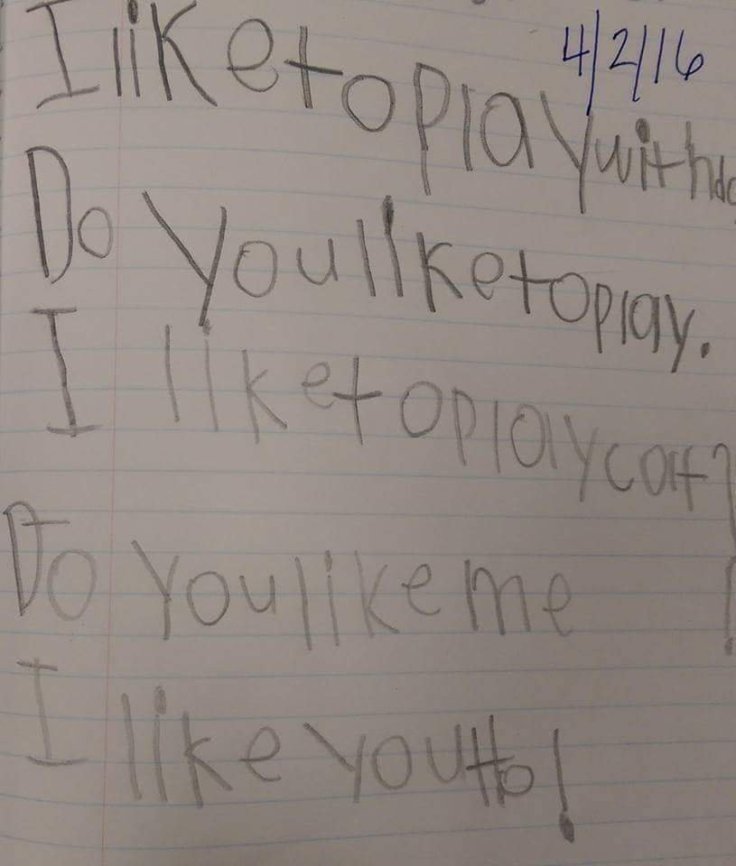 4/2/16
I like to play with do
Do you like to play.
I like to play cat?
Do you like me !
I like you tto!